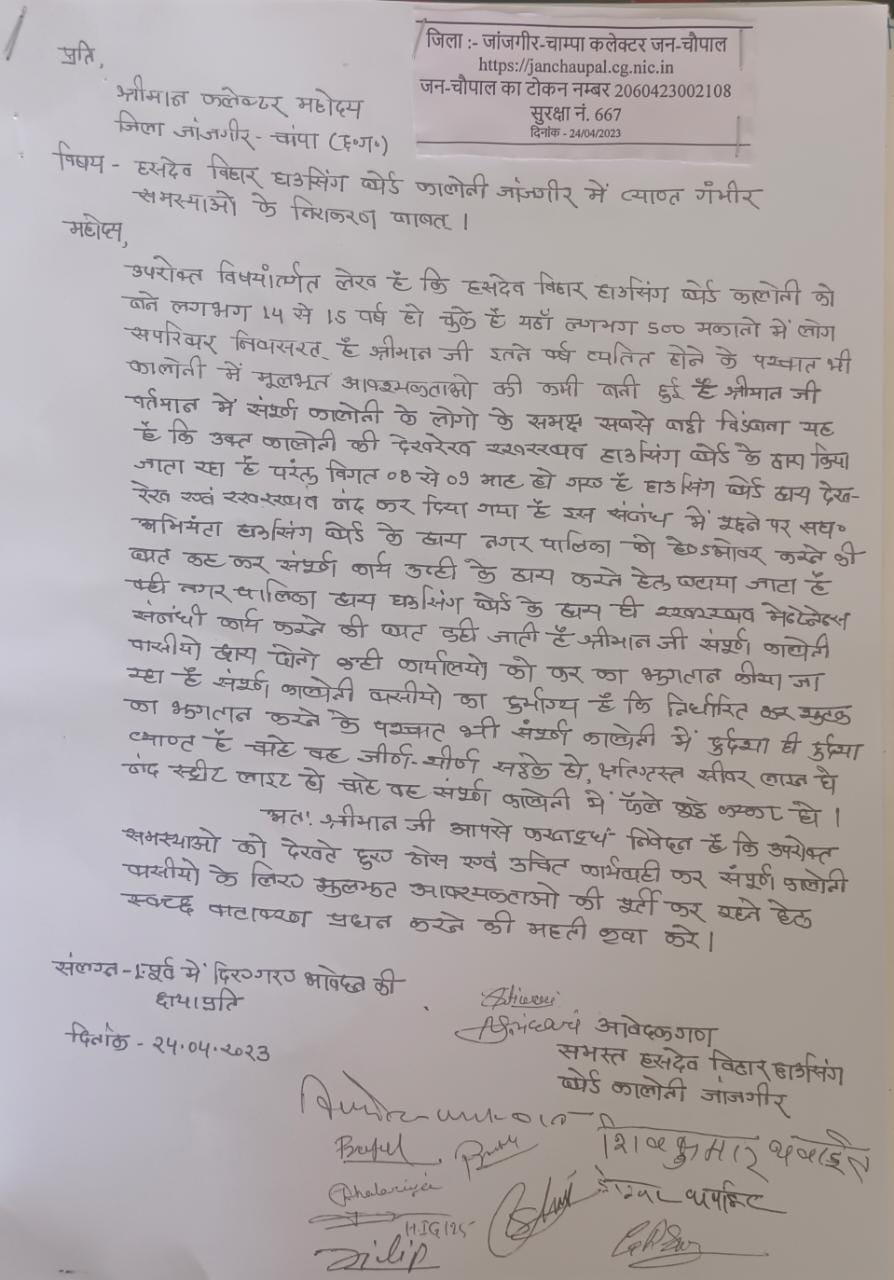 जिला :- जांजगीर-चाम्पा कलेक्टर जन-चौपाल
https://janchaupal.cg.nic.in
जन-चौपाल का टोकन नम्बर 2060423002108
सुरक्षा नं. 667
दिनांक - 24/04/2023
प्रति,
श्रीमान कलेक्टर महोदय
जिला जांजगीर - चांपा (छ.ग.)
विषय - हसदेव विहार हाउसिंग बोर्ड कालोनी जांजगीर में व्याप्त गंभीर
समस्याओं के निराकरण बाबत् ।
महोदय,
उपरोक्त विषयांर्तगत लेख है कि हसदेव विहार हाउसिंग बोर्ड कालोनी को
बने लगभग 14 से 15 वर्ष हो चुके है यहाँ लगभग 500 मकानो में लोग
सपरिवार निवासरत् है श्रीमान जी इतने वर्ष व्यतित होने के पश्चात भी
कालोनी में मूलभूत आवश्यकताओ की कमी बनी हुई है श्रीमान जी
वर्तमान में संपूर्ण कालोनी के लोगो के समक्ष सबसे बड़ी विडंबना यह
है कि उक्त कालोनी की देखरेख रखरखाव हाउसिंग बोर्ड के द्वारा किया
जाता रहा है परंतु विगत 08 से 09 माह हो गए है हाउसिंग बोर्ड द्वारा देख-
रेख एवं रखरखाव बंद कर दिया गया है इस संबंध में पूछने पर सहा.
अभियंता हाउसिंग बोर्ड के द्वारा नगर पालिका को हेण्डओवर करने की
बात कह कर संपूर्ण कार्य उन्ही के द्वारा करने हेतु बताया जाता है
वही नगर पालिका द्वारा हाउसिंग बोर्ड के द्वारा ही रखरखाव मेन्टेनेन्स
संबंधी कार्य करने की बात कही जाती है श्रीमान जी संपूर्ण कालोनी
वासीयो द्वारा दोनो कार्यालयो को कर का भुगतान कीया जा
रहा है संपूर्ण कालोनी वासीयो का दुर्भाग्य है कि निर्धारित कर शुल्क
का भुगतान करने के पश्चात भी संपूर्ण कालोनी में दुर्दशा ही दुर्दशा
व्याप्त है चाहे वह जीर्ण-शीर्ण सड़के हो, क्षतिग्रस्त सीवर लाइन हो
बंद स्ट्रीट लाइट हो चाहे वह संपूर्ण कालोनी में फैले कचरा हो ।
अतः श्रीमान जी आपसे करबद्ध निवेदन है कि उपरोक्त
समस्याओ को देखते हुए ठोस एवं उचित कार्यवाही कर संपूर्ण कालोनी
वासीयो के लिए मुलभुत आवश्यकताओ की पूर्ती कर रहने हेतु
स्वच्छ वातावरण प्रधान करने की महती कृपा करे ।
संलग्न - 1. पूर्व में दिए गए आवेदन की
छायाप्रति
दिनांक - 24.04.2023
आवेदकगण
समस्त हसदेव विहार हाउसिंग
बोर्ड कालोनी जांजगीर
शिवकुमार
HIG 125
Dilip